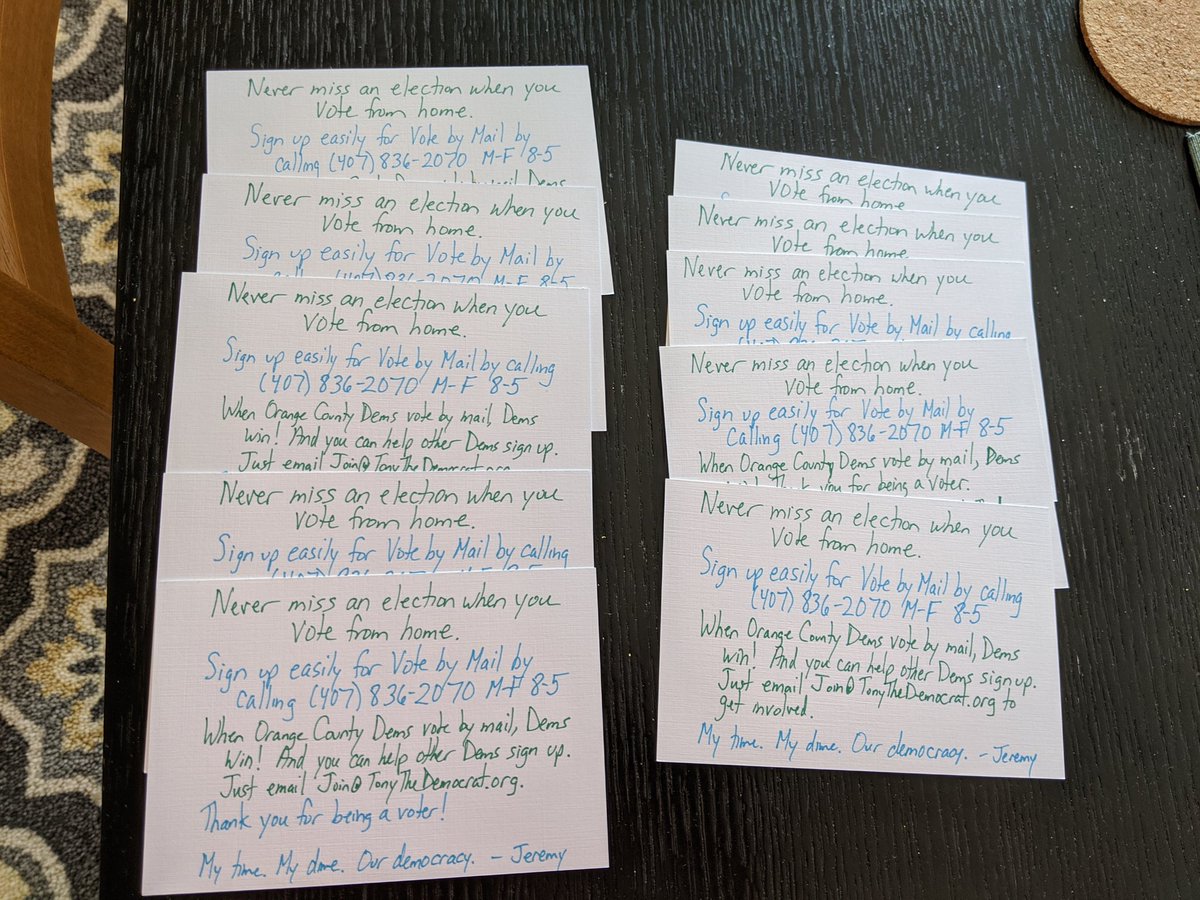 Never miss an election when you
Vote from home.
Sign up easily for Vote by Mail by
calling (407) 836-2070 M-F 8-5
Never miss an election when you
Vote from home.
Sign up easily for Vote by Mail by
(407) 836-2070 M-F 8-5
Never miss an election when you
Vote from home.
Sign up easily for Vote by Mail by calling
(407) 836-2070 M-F 8-5
When Orange County Dems vote by mail, Dems
win! And you can help other Dems sign up.
Just email Join@TonyTheDemocrat.org
Never miss an election when you
Vote from home.
Sign up easily for Vote by Mail by calling
Never miss an election when you
Vote from home.
Sign up easily for Vote by Mail by
calling (407) 836-2070 M-F 8-5
When Orange County Dems vote by mail, Dems
win! And you can help other Dems sign up.
Just email Join@TonyTheDemocrat.org.
Thank you for being a voter!
My time. My dime. Our democracy. - Jeremy
Never miss an election when you
Vote from home
Never miss an election when you
Vote from home.
Never miss an election when you
Vote from home.
Sign up easily for Vote by Mail by calling
Never miss an election when you
Vote from home.
Sign up easily for Vote by Mail by
calling (407) 836-2070 M-F 8-5
When Orange County Dems vote by mail, Dems
Thank you for being a voter.
Never miss an election when you
Vote from home.
Sign up easily for Vote by Mail by calling
(407) 836-2070 M-F 8-5
When Orange County Dems vote by mail, Dems
win! And you can help other Dems sign up.
Just email Join@TonyTheDemocrat.org to
get involved.
My time. My dime. Our democracy. - Jeremy